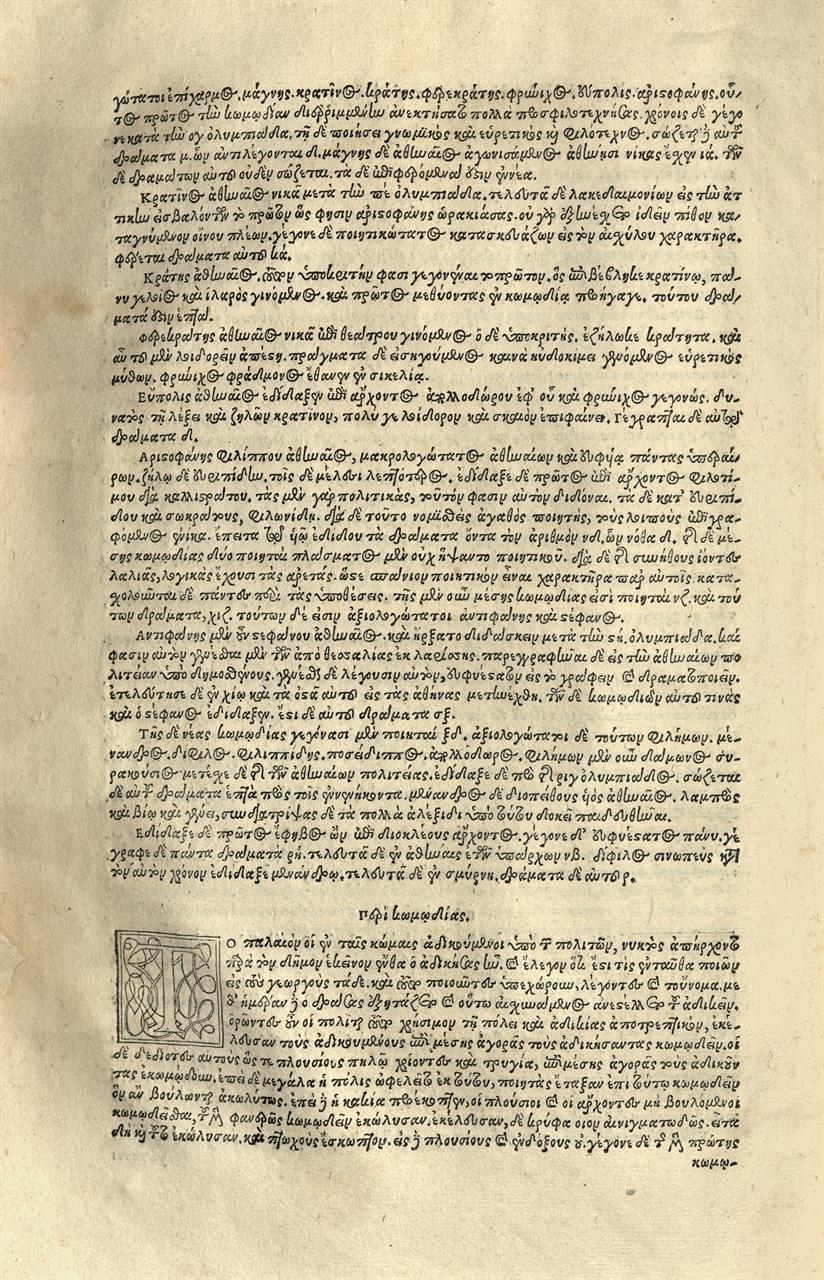 γώτατοι ἐπίχαρμος. μάγνης. κρατῖνος. κράτης. φερεκράτης. φρύνιχος. εὔπολις. ἀριστοφάνης. οὗ-
τος πρῶτος τὴν κωμῳδίαν διερριμμένην ἀνεκτήσατο πολλὰ προσφιλοτεχνήσας. χρόνοις δὲ γέγο
νε κατὰ τὴν ογ ὀλυμπιάδα. τῇ δὲ ποιήσει γνωμικὸς καὶ εὑρετικὸς καὶ φιλότεχνος. σώζεται δὲ αὐτοῦ
δράματα μ. ὧν ἀντιλέγονται δ. μάγνης δὲ ἀθηναῖος ἀγωνισάμενος ἀθήνησι νίκας ἔχεν ιά. τῶν
δὲ δραμάτων αὐτοῦ οὐδὲν σώζεται. τὰ δὲ ἐπιφερόμενα ἐστὶν ἐννέα.
Κρατῖνος ἀθηναῖος νικᾷ μετὰ τὴν πέ ὀλυμπιάδα. τελευτᾷ δὲ λακεδαιμονίων εἰς τὴν ἀτ
τικὴν εἰσβαλόντων τὸ πρῶτον ὥς φησιν ἀριστοφάνης ὡρακιάσας. οὐ γὰρ ἐξήνεσχετο ἰδεῖν πίθον κα-
ταγνύμενον οἴνου πλέων. γέγονε δὲ ποιητικώτατος κατασκευάζων εἰς τὸν αἰσχύλου χαρακτῆρα.
φέρεται δράματα αὐτοῦ κά.
Κράτης ἀθηναῖος, τοῦτον ὑποκριτήν φασι γεγονέναι τὸ πρῶτον. ὃς ἐπιβέβληκε κρατίνῳ, πά-
νυ γελοῖος καὶ ἱλαρὸς γινόμενος. καὶ πρῶτος μεθύοντας ἐν κωμῳδίᾳ προήγαγε. τούτου δρά-
ματά ἐστιν ἑπτά.
Φερεκράτης ἀθηναῖος νικᾷ ἐπὶ θεάτρου γινόμενος ὁ δὲ ὑποκριτής. ἐζήλωκε κράτητα. καὶ
αὖ τοῦ μὲν λοιδορεῖν ἀπέστη. πράγματα δὲ εἰσηγούμενος καινὰ ηὐδοκίμει γενόμενος εὑρετικὸς
μύθων. φρύνιχος φράδμονος ἔθανεν ἐν σικελίᾳ.
Εὔπολις ἀθηναῖος ἐδίδαξεν ἐπὶ ἄρχοντος ἀπολλοδώρου ἐφ' οὗ καὶ φρύνιχος γεγονώς. δυ-
νατὸς τῇ λέξει καὶ ζηλῶν κρατῖνον, πολὺ γε λοίδορον καὶ σκαιὸν ἐπιφαίνει. Γέγραπται δὲ αὐτῷ
δράματα δι.
Αριστοφάνης φιλίππου ἀθηναῖος, μακρολογώτατος ἀθηναίων καὶ εὐφυΐᾳ πάντας ὑπεραί-
ρων. ζήλῳ δὲ εὐριπίδην. τοῖς δὲ μέλεσι λεπτότερος. ἐδίδαξε δὲ πρῶτος ἐπὶ ἄρχοντος φιλοτί-
μου διὰ καλλιστράτου. τὰς μὲν γὰρ πολιτικὰς, τοῦτόν φασιν αὐτὸν διδόναι. τὰ δὲ κατ' εὐριπί-
δου καὶ σωκράτους, φιλωνίδῃ. διὰ δὲ τοῦτο νομισθεὶς ἀγαθὸς ποιητής, τοὺς λοιποὺς ἐπιγρα-
φόμενος ἐνίκα. ἔπειτα τῷ υἱῷ ἐδίδου τὰ δράματα ὄντα τὸν ἀριθμὸν νδ, ὧν νόθα δ. τῆς δὲ μέ-
σης κωμῳδίας δύο ποιηταὶ πλάσματος μὲν οὐχ ἥψαντο ποιητικοῦ. διὰ δὲ τῆς συνήθους ἰόντες
λαλιᾶς, λογικὰς ἔχουσι τὰς ἀρετάς. ὥστε σπάνιον ποιητικὸν εἶναι χαρακτῆρα παρ' αὐτοῖς. κατα-
σχολοῦνται δὲ πάντες περὶ τὰς ὑποθέσεις. τῆς μὲν οὖν μέσης κωμῳδίας εἰσὶ ποιηταὶ νζ. καὶ τού
των δράματα, χιζ. τούτων δέ εἰσιν ἀξιολογώτατοι ἀντιφάνης καὶ στέφανος.
Αντιφάνης μὲν ἦν στεφάνου ἀθηναῖος. καὶ ἤρξατο διδάσκειν μετὰ τὴν ϟη. ὀλυμπιάδα. καί
φασιν αὐτὸν γενέσθαι μὲν τῶν ἀπὸ θεσσαλίας ἐκ λαρίσσης. παρεγγραφῆναι δὲ εἰς τὴν ἀθηναίων πο
λιτείαν ὑπὸ δημοσθένους. γενέσθαι δὲ λέγουσιν αὐτὸν, εὐφυέστατον εἰς τὸ γράφειν καὶ δραματοποιεῖν.
ἐτελεύτησε δὲ ἐν χίῳ καὶ τὰ ὀστᾶ αὐτοῦ εἰς τὰς ἀθήνας μετηνέχθη. τῶν δὲ κωμῳδιῶν αὐτοῦ τινὰς
καὶ ὁ στέφανος ἐδίδαξεν. ἔστι δὲ αὐτοῦ δράματα σξ.
Τῆς δὲ νέας κωμῳδίας γεγόνασι μὲν ποιηταὶ ξδ. ἀξιολογώτατοι δὲ τούτων φιλήμων. μέ-
νανδρος. δίφιλος. φιλιππίδης. ποσείδιππος. ἀπολλόδωρος. φιλήμων μὲν οὖν δάμωνος συ-
ρακούσιος μετέσχε δὲ τῆς τῶν ἀθηναίων πολιτείας. ἐδίδαξε δὲ πρὸ τῆς ριγ ὀλυμπιάδος. σώζεται
δὲ αὐτοῦ δράματα ἑπτὰ πρὸς τοῖς ἐννενήκοντα. μένανδρος δὲ διοπείθους υἱὸς ἀθηναῖος. λαμπρὸς
καὶ βίῳ καὶ γένει, συνδιατρίψας δὲ τὰ πολλὰ ἀλέξιδι ὑπὸ τούτου δοκεῖ παιδευθῆναι.
Εδίδαξε δὲ πρῶτος ἔφηβος ὢν ἐπὶ διοκλέους ἄρχοντος. γέγονε δ' εὐφυέστατος πάνυ. γέ
γραφε δὲ πάντα δράματα ρη. τελευτᾷ δὲ ἐν ἀθήναις ἐτῶν ὑπάρχων νβ. δίφιλος σινωπεὺς κατὰ
τὸν αὐτὸν χρόνον ἐδίδαξε μενάνδρῳ. τελευτᾷ δὲ ἐν σμύρνῃ. δράματα δὲ αὐτοῦ ρ.
Περὶ κωμῳδίας.
Το παλαιὸν οἱ ἐν ταῖς κώμαις ἀδικούμενοι ὑπὸ τῶν πολιτῶν, νυκτὸς ἀπήρχοντο
παρὰ τὸν δῆμον ἐκεῖνον ἔνθα ὁ ἀδικήσας ἦν. καὶ ἔλεγον ὅτι ἔστι τὶς ἐνταῦθα ποιῶν
εἰς τοὺς γεωργοὺς τάδε. καὶ τοῦτο ποιοῦντες ὑπεχώρουν, λέγοντες καὶ τοὔνομα. με
θ' ἡμέραν δὲ ὁ δράσας ἐξητάζετο καὶ οὕτω αἰσχυνόμενος ἀνεστέλλετο τοῦ ἀδικεῖν.
ὁρῶντες οὖν οἱ πολῖται τοῦτο χρήσιμον τῇ πόλει καὶ ἀδικίας ἀποτρεπτικὸν, ἐκέ-
λευσαν τοὺς ἀδικουμένους ἐπὶ μέσης ἀγορᾶς τοὺς ἀδικήσαντας κωμῳδεῖν. οἱ
δὲ δεδιότες αὐτοὺς ὥς τε πλουσίους πηλῷ χρίοντες καὶ τρυγίᾳ, ἐπὶ μέσης ἀγορᾶς τοὺς ἀδικοῦν
τας ἐκωμῴδουν. ἐπεὶ δὲ μεγάλα ἡ πόλις ὠφελεῖτο ἐκ τούτου, ποιητὰς ἔταξαν ἐπὶ τούτῳ κωμῳδεῖν
ὃν ἂν βούλωνται ἀκωλύτως. ἐπεὶ δὲ ἡ κακία προέκοπτεν, οἱ πλούσιοι καὶ οἱ ἄρχοντες μὴ βουλόμενοι
κωμῳδεῖσθαι, τὸ μὲν φανερῶς κωμῳδεῖν ἐκώλυσαν. ἐκέλευσαν, δὲ κρύφα οἷον αἰνιγματωδῶς. εἶτα
δὴ καὶ τοῦτο ἐκώλυσαν. καὶ πτωχοὺς ἔσκωπτον. εἰς δὲ πλουσίους καὶ ἐνδόξους οὔ. γέγονε δὲ τῆς μὲν πρώτης
κωμῳ-